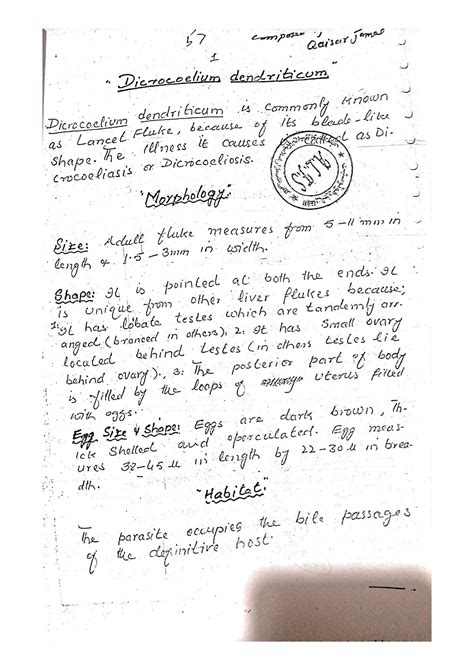 57
Composer
Qaisar Jamal
1
"Dicrocoelium dendriticum"
Dicrocoelium dendriticum is commonly known
as Lancet Fluke, because of its blade-like
shape. The illness it causes is as Di-
crocoeliasis or Dicrocoeliosis.
"Morphology"
Size: Adult fluke measures from 5-11 mm in
length & 1.5-3mm in width.
Shape: It is pointed at both the ends. It
is unique from other liver flukes because;
1: It has lobate testes which are tandemly arr-
anged (branced in others), 2: It has Small ovary
located behind testes (in others testes lie
behind ovary), 3: The posterior part of body
is filled by the loops of uterus filled
with eggs.
Egg Size & Shape: Eggs are dark brown, Th-
ick Shelled and operculated. Egg meas-
ures 38-45 µ in length by 22-30 µ in brea-
dth.
"Habitat"
The parasite occupies the bile passages
of the definitive host.